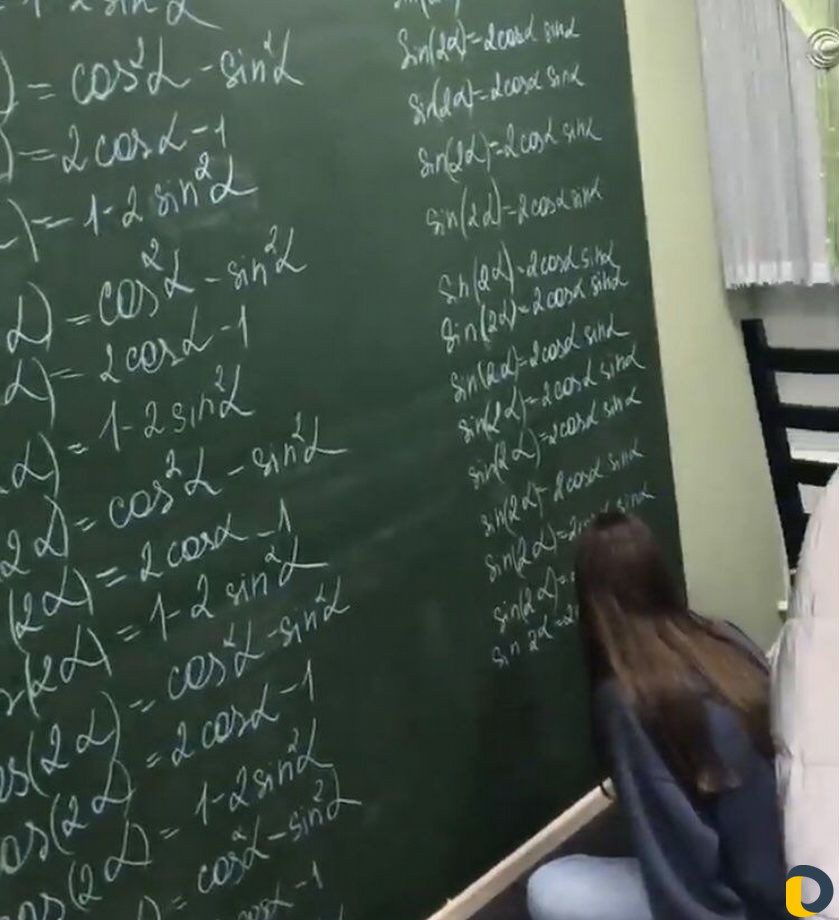 1-2 sin²α
) = cos²α - sin²α
) = 2 cosα - 1
) = 1-2 sin²α
α) = cos²α - sin²α
α) = 2 cosα - 1
α) = 1-2 sin²α
2α) = cos²α - sin²α
(2α) = 2 cosα - 1
(2α) = 1-2 sin²α
s(2α) = cos²α - sin²α
os(2α) = 2 cosα - 1
os(2α) = 1-2 sin²α
) = cos²α - sin²α
cosα - 1
sin(2α) = 2cosα sinα
sin(2α) = 2cosα sinα
sin(2α) = 2cosα sinα
sin(2α) = 2cosα sinα
sin(2α) = 2cosα sinα
sin(2α) = 2cosα sinα
sin(2α) = 2cosα sinα
sin(2α) = 2cosα sinα
sin(2α) = 2cosα sinα
sin(2α) = 2cosα sinα
sin(2α) = 2 sinα
sin(2α) =
sin 2α = 2